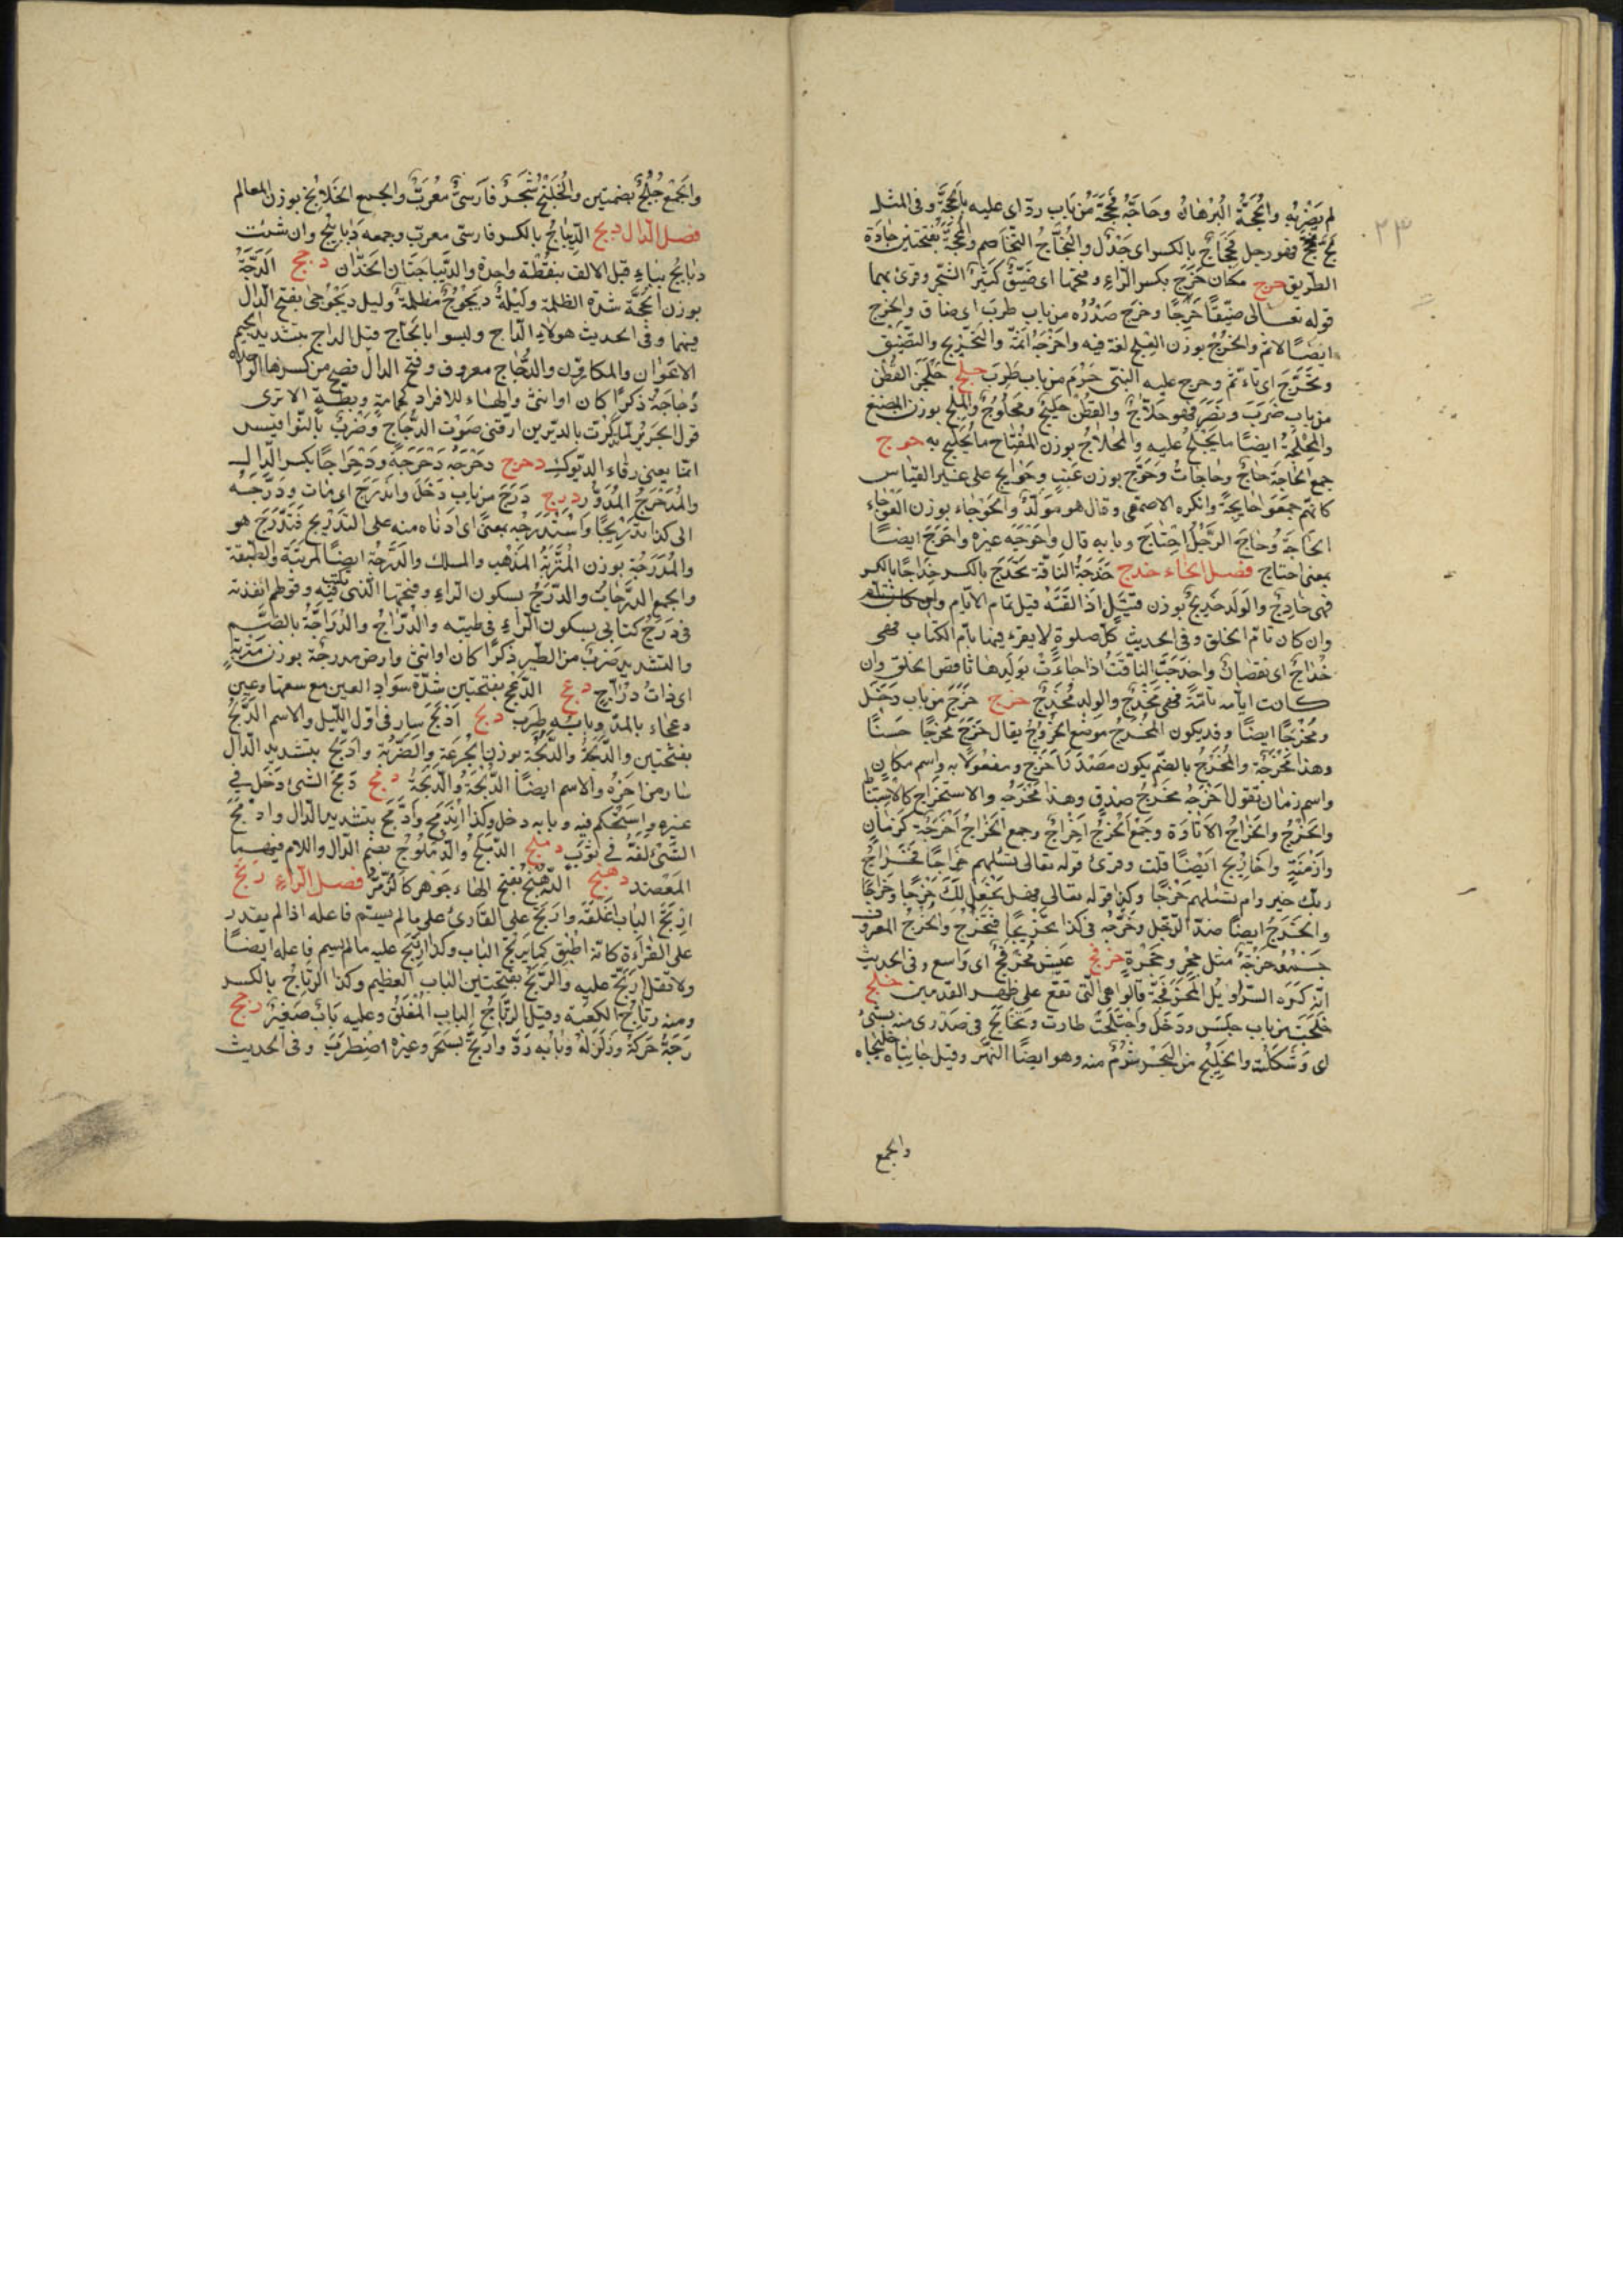 ٢٣
لم يضربه والحُجَّة البرهان وحاجّه فحجّه من باب ردّ اى عليه بالحجّة وفى المثل
لجّ فحجّ فهو رجل محجاج بالكسر اى جدل والتحاجّ التخاصم والمحجّة بفتحتين جادّة
الطريق حرج مكان حرج بكسر الراء وفتحها اى ضيّق كثير الشجر وقرئ بهما
قوله تعالى ضيّقًا حرجًا وحرج صدره من باب طرب اى ضاق والحرج
ايضًا الاثم والحرج بوزن العلج لغة فيه واحرجه اثمه والتحريج والتضييق
وتحرّج اى تأثم وحرج عليه الشئ حرم من باب طرب حلج حلج القطن
من باب ضرب ونصر فهو حلّاج والقطن حليج ومحلوج والمحلج بوزن المبضع
والمحلجة ايضًا ما يحلج عليه والمحلاج بوزن المفتاح ما يحلج به حوج
جمع الحاجة حاج وحاجات وحوج بوزن عنب وحوايج على غير القياس
كانهم جمعوا حايجة وانكره الاصمعى وقال هو مولّد والحوجاء بوزن العوجاء
الحاجة وحاج الرجل احتاج وبابه قال واحوجه غيره واحوج ايضًا
بمعنى احتاج فصل الخاء خدج خدجت الناقة تخدج بالكسر خداجًا بالكسر
فهى خادج والولد خديج بوزن قتيل اذا القته قبل تمام الايام
وان كان تامّ الخلق وفى الحديث كلّ صلوة لا يقرء فيها بامّ الكتاب فهى
خداج اى نقصان واخدجت الناقة اذا جاءت بولدها ناقص الخلق وان
كانت ايامه تامّة فهى مخدج والولد مخدج خرج خرج من باب دخل
ومخرجًا ايضًا وقد يكون المخرج موضع الخروج يقال خرج مخرجًا حسنًا
وهذا مخرجه والمخرج بالضم يكون مصدر اخرج ومفعولًا به واسم مكان
واسم زمان تقول اخرجه مخرج صدق وهذا مخرجه والاستخراج كالاستنباط
والخرج والخراج الاتاوة وجمع الخرج اخراج وجمع الخراج اخرجة كزمان
وازمنة واخاريج ايضًا قلت وقرئ قوله تعالى ام تسئلهم خراجًا فخراج
ربّك خير وام تسئلهم خرجًا وكذا قوله تعالى فهل نجعل لك خرجًا وخراجًا
والخرج ايضًا ضدّ الدخل وخرّجه فى كذا تخريجًا فتخرّج والخرج المعروف
جمعه خرجة مثل جحر وجحرة خرفج عيش مخرفج اى واسع وفى الحديث
انّه كره السراويل المخرفجة قالوا هى التى تقع على ظهر القدمين خلج
خلجت من باب جلس ودخل واختلجت طارت وتخالج فى صدرى منه شئ
اى شككت والخليج من البحر شرم منه وهو ايضًا النهر وقيل جانباه خليجاه
والجمع
والجمع خلج بضمتين والخلنج شجر فارسىّ معرّب والجمع الخلانج بوزن المعالم
فصل الدال دبج الديباج بالكسر فارسىّ معرّب وجمعه ديابيج وان شئت
دبابيج بباء قبل الالف بنقطة واحدة والديباجتان الخدّان دجج الدجّة
بوزن الحجّة شدّة الظلمة وليلة ديجوج مظلمة وليل ديجوجى بفتح الدال
فيهما وفى الحديث هولاء الداج وليسوا بالحاج قيل الداج بتشديد الجيم
الاعوان والمكارون والدجاج معروف وفتح الدال افصح من كسرها الواحدة
دجاجة ذكرًا كان او انثى والهاء للافراد كحمامة وبطّة الا ترى
قول الجرير لمّا تذكّرت بالديرين ارّقنى صوت الدجاج وضرب بالنواقيس
انما يعنى زقاء الديوك دحرج دحرجه دحرجة ودحراجًا بكسر الدال
والمدحرج المدوّر درج درج من باب دخل واندرج اى مات ودرّجه
الى كذا تدريجًا واستدرجه بمعنى اى ادناه منه على التدريج فتدرّج هو
والمدرجة بوزن المتربة المذهب والمسلك والدرجة ايضًا المرتبة والطبقة
والجمع الدرجات والدرج بسكون الراء وفتحها الذى يكتب فيه وقولهم انفذته
فى درج كتابى بسكون الراء فى طيّه والدرّاج والدرّاجة بالضم
والتشديد ضرب من الطير ذكرًا كان او انثى وارض مدرجة بوزن متربة
اى ذات درّاج دعج الدعج بفتحتين شدّة سواد العين مع سعتها وعين
دعجاء بالمدّ وبابه طرب دلج ادلج سار فى اوّل الليل والاسم الدلج
بفتحتين والدلجة والدلجة بوزن الجرعة والضربة وادّلج بتشديد الدال
سار من اخره والاسم ايضًا الدلجة والدلجة دمج دمج الشئ دخل فى
غيره واستحكم فيه وبابه دخل وكذا اندمج وادّمج بتشديد الدال وادمج
الشئ لفّه فى ثوب دملج الدملج والدملوج بضم الدال واللام فيهما
المعضد دهنج الدهنج بفتح الهاء جوهر كالزمرّد فصل الراء رتج
ارتج الباب اغلقه وارتج على القارى على ما لم يسمّ فاعله اذا لم يقدر
على القراءة كانه اطبق كما يرتج الباب وكذا ارتتج عليه ما لم يسم فاعله ايضًا
ولا تقل ارتجّ عليه والرتج بفتحتين الباب العظيم وكذا الرتاج بالكسر
ومنه رتاج الكعبة وقيل الرتاج الباب المغلق وعليه باب صغير رجج
رجّه حركه وزلزله وبابه ردّ وارتجّ البحر وغيره اضطرب وفى الحديث